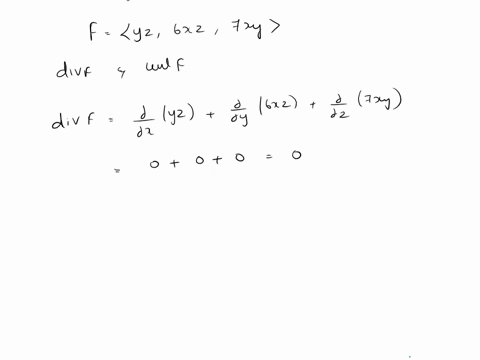 F = <yz, 6xz, 7xy>
div F & curl F
div F = ∂/∂x (yz) + ∂/∂y (6xz) + ∂/∂z (7xy)
= 0 + 0 + 0 = 0